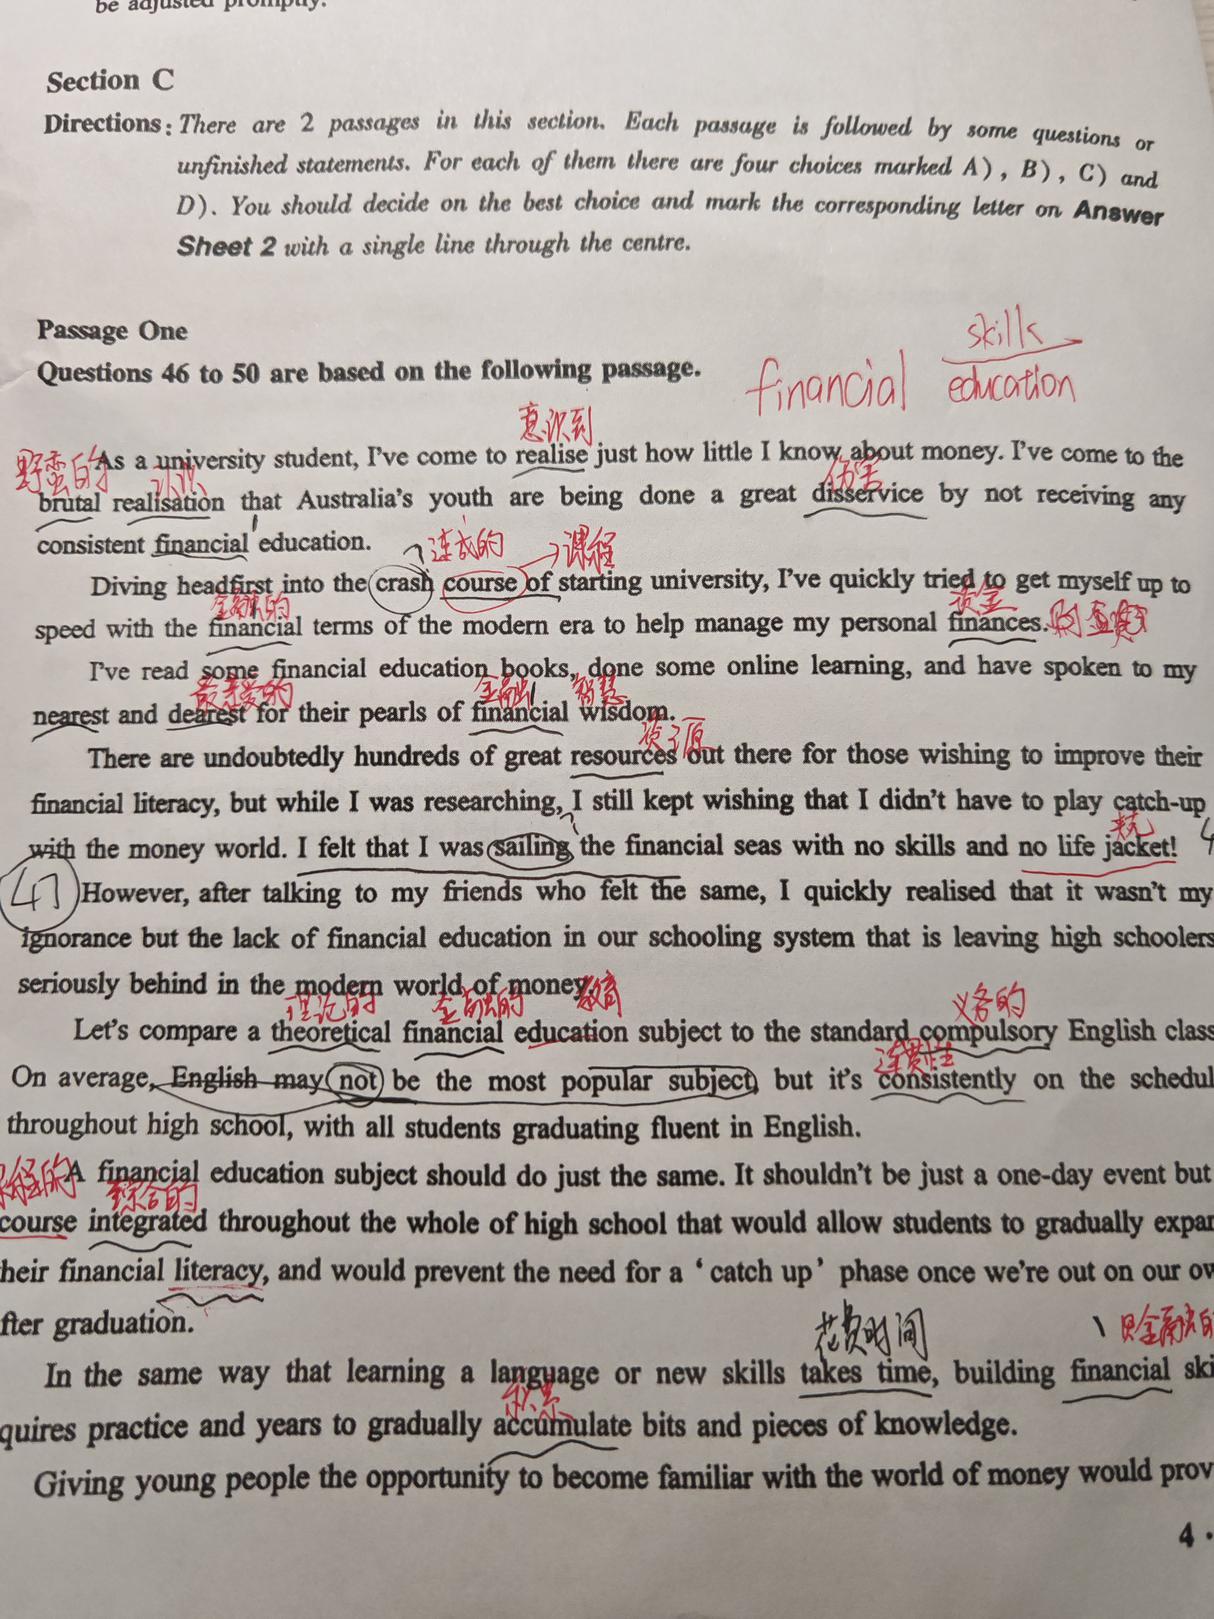 be adjusted promptly.
Section C
Directions: There are 2 passages in this section. Each passage is followed by some questions or
unfinished statements. For each of them there are four choices marked A), B), C) and
D). You should decide on the best choice and mark the corresponding letter on Answer
Sheet 2 with a single line through the centre.
skills
Passage One
financial education
Questions 46 to 50 are based on the following passage.
意识到
野蛮的 As a university student, I've come to realise just how little I know about money. I've come to the
认识 伤害
brutal realisation that Australia's youth are being done a great disservice by not receiving any
consistent financial education.
速成的 课程
Diving headfirst into the crash course of starting university, I've quickly tried to get myself up to
金融的 资金
speed with the financial terms of the modern era to help manage my personal finances.
I've read some financial education books, done some online learning, and have spoken to my
最亲爱的 金融 智慧
nearest and dearest for their pearls of financial wisdom.
资源
There are undoubtedly hundreds of great resources out there for those wishing to improve their
financial literacy, but while I was researching, I still kept wishing that I didn't have to play catch-up
with the money world. I felt that I was sailing the financial seas with no skills and no life jacket!
47 However, after talking to my friends who felt the same, I quickly realised that it wasn't my
ignorance but the lack of financial education in our schooling system that is leaving high schoolers
seriously behind in the modern world of money.
理论的 金融的 教育 义务的
Let's compare a theoretical financial education subject to the standard compulsory English class
连贯性
On average, English may not be the most popular subject, but it's consistently on the schedul
throughout high school, with all students graduating fluent in English.
A financial education subject should do just the same. It shouldn't be just a one-day event but
综合的
course integrated throughout the whole of high school that would allow students to gradually expan
heir financial literacy, and would prevent the need for a 'catch up' phase once we're out on our ow
fter graduation.
花费时间
In the same way that learning a language or new skills takes time, building financial ski
积累
quires practice and years to gradually accumulate bits and pieces of knowledge.
Giving young people the opportunity to become familiar with the world of money would prov
4 ·